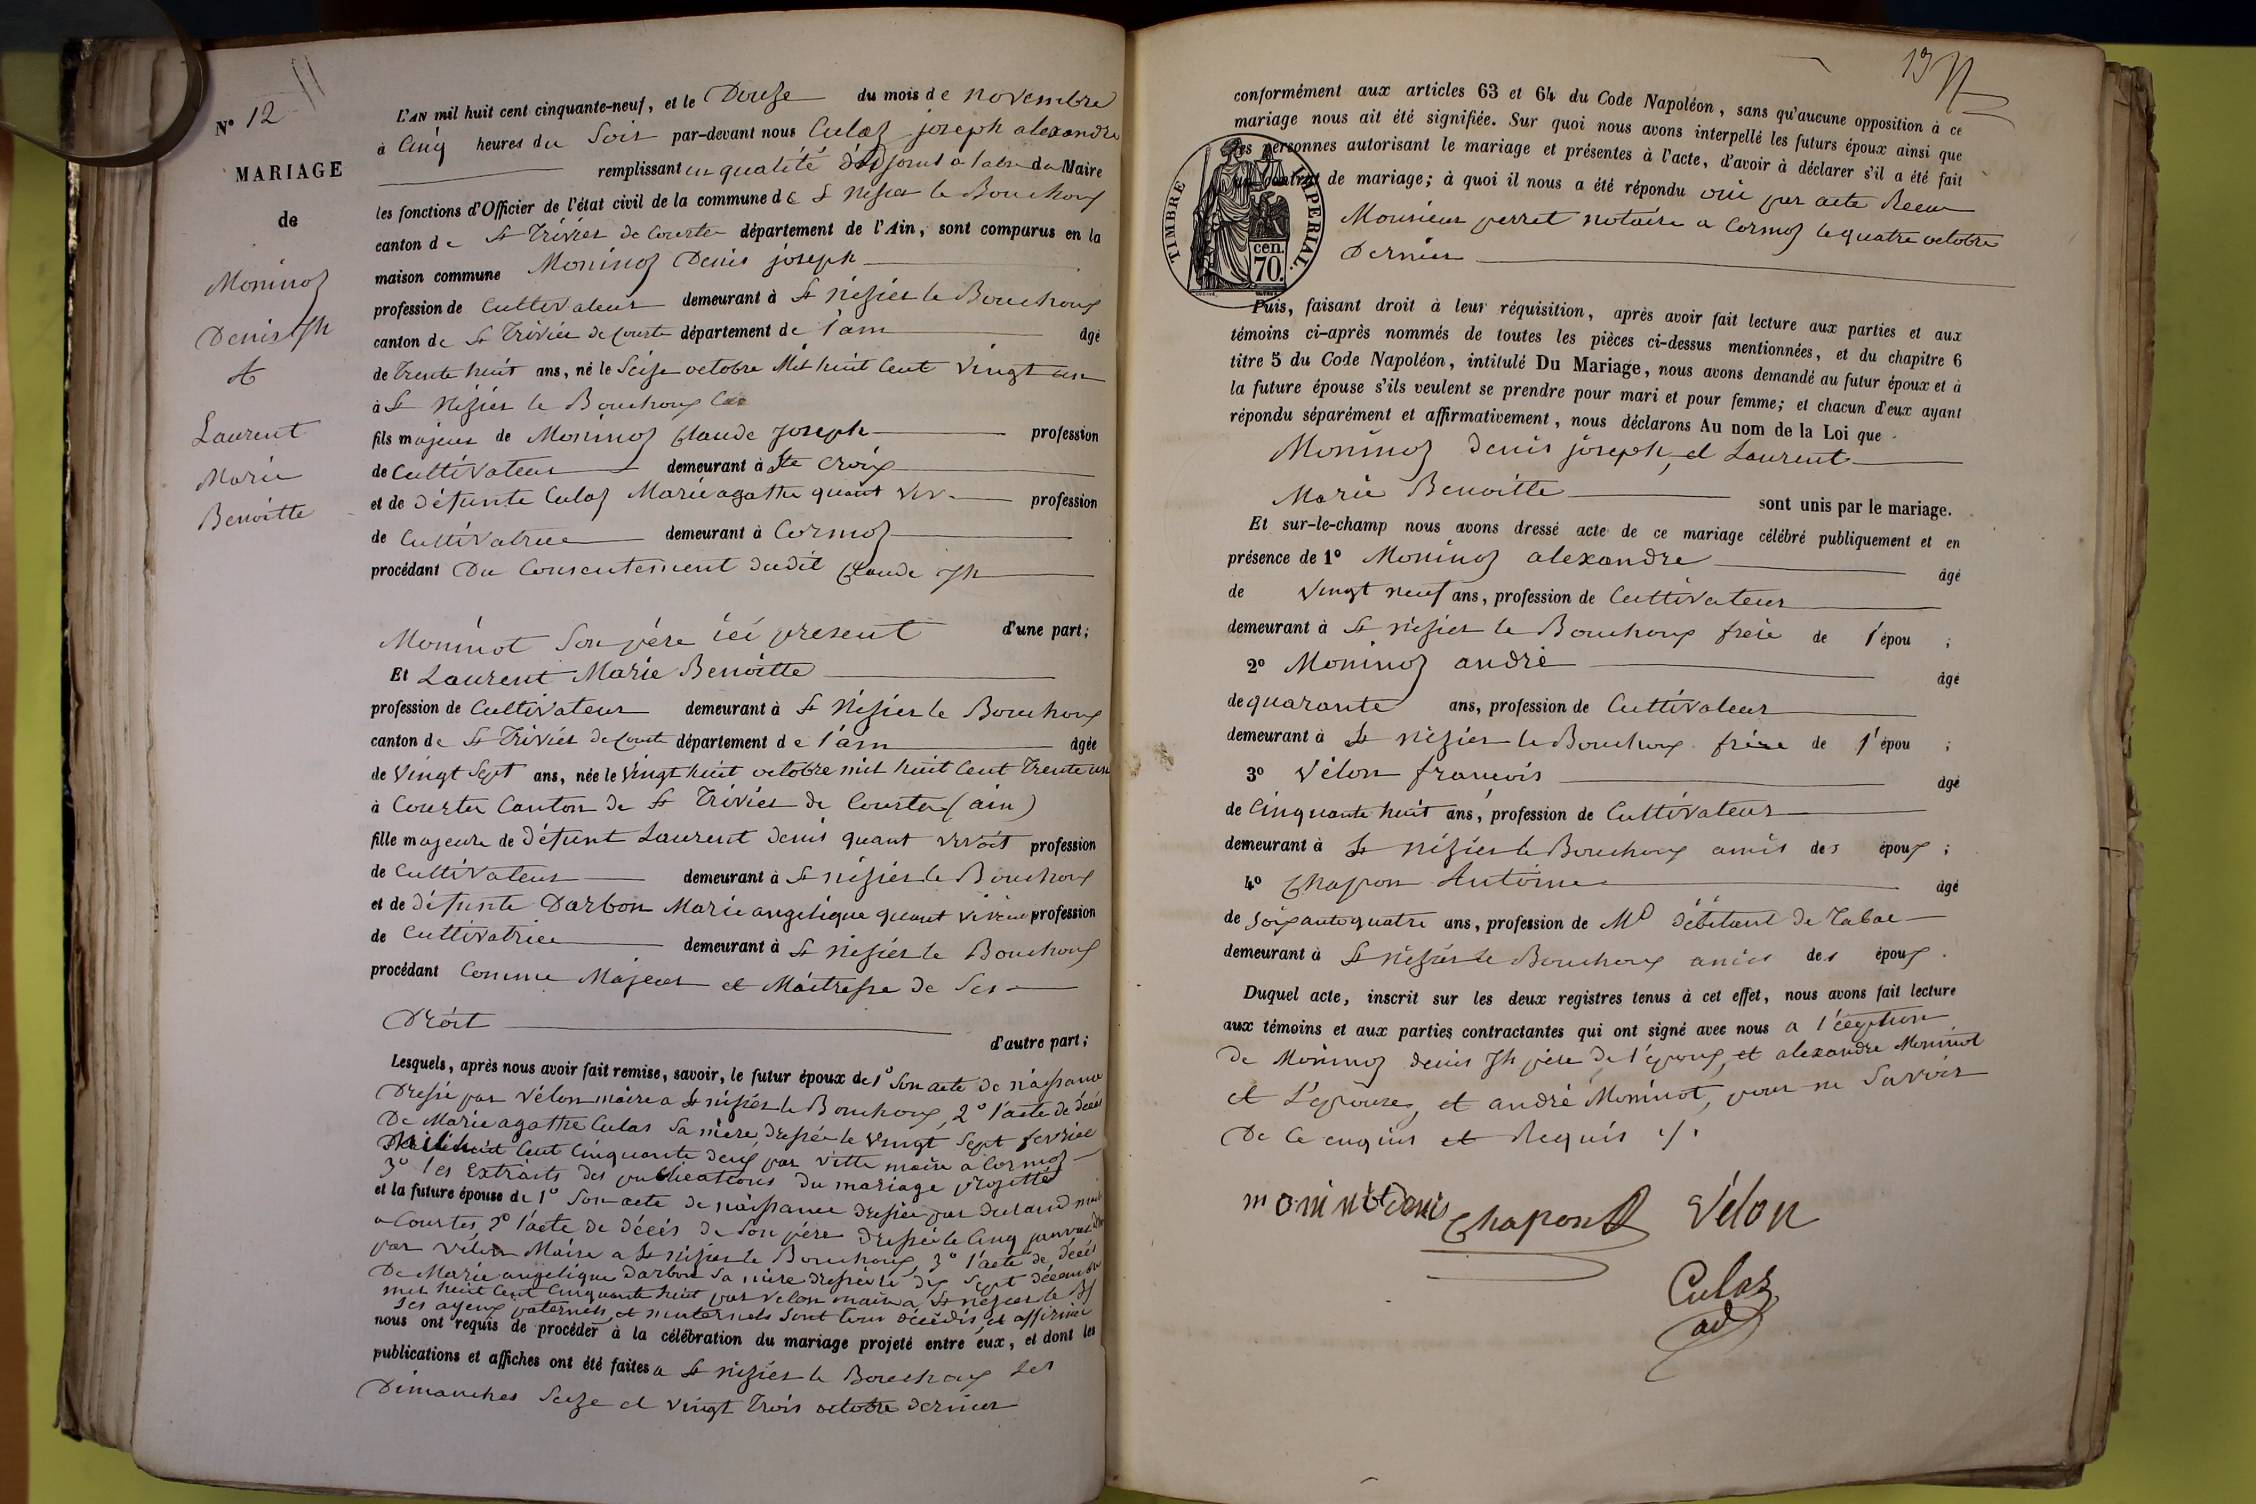 N° 12
MARIAGE
de
Moninoz
Denis Jh
&
Laurent
Marie
Benoitte
L'AN mil huit cent cinquante-neuf, et le Douze du mois de novembre
à Cinq heures du Soir par-devant nous Culaz joseph alexandre
remplissant en qualité d'adjoint du Maire
les fonctions d'Officier de l'état civil de la commune de St Nizier le Bouchoux
canton de St Trivier de Courtes département de l'Ain, sont comparus en la
maison commune Moninoz Denis joseph
profession de Cultivateur demeurant à St Nizier le Bouchoux
canton de St Trivier de Courte département de l'ain âgé
de Trente huit ans, né le Seize octobre Mil huit Cent Vingt un
à St Nizier le Bouchoux
fils majeur de Moninoz Claude Joseph profession
de Cultivateur demeurant à Ste Croix
et de défunte Culaz Marie agathe quant viv. profession
de Cultivatrice demeurant à Cormoz
procédant Du Consentement dudit Claude Jh
Moninot Son père ici présent d'une part;
Et Laurent Marie Benoitte
profession de Cultivateur demeurant à St Nizier le Bouchoux
canton de St Trivier de Courte département de l'ain âgée
de Vingt Sept ans, née le Vingt huit octobre mil huit Cent Trente un
à Courtes Canton de St Trivier de Courtes (ain)
fille majeure de défunt Laurent Denis quant vivoit profession
de Cultivateur demeurant à St nizier le Bouchoux
et de défunte Darbon Marie angelique quant vivoit profession
de Cultivatrice demeurant à St nizier le Bouchoux
procédant Comme Majeur et Maitresse de Ses
Droit d'autre part;
Lesquels, après nous avoir fait remise, savoir, le futur époux de 1° Son acte de naissance
Dressé par Vélon maire a St nizier le Bouchoux, 2° l'acte de décès
De Marie agathe Culas Sa mère, dressée le Vingt Sept fevrier
huit Cent Cinquante deux par Vitte maire a Cormoz
3° les Extraits des publications du mariage projetté
et la future épouse de 1° Son acte de naissance dressée par durand maire
a Courtes, 2° l'acte de décès de Son père dressée le Cinq janvier
par Vélon Maire a St nizier le Bouchoux, 3° l'acte de décès
De Marie angelique Darbon Sa mère dressée le dix Sept décembre
mil huit Cent Cinquante huit par Velon maire a St nizier le Bx
Ses ayeux paternels et maternels Sont tous décédés, et affirmée
nous ont requis de procéder à la célébration du mariage projeté entre eux, et dont les
publications et affiches ont été faites a St nizier le Bouchoux les
Dimanches Seize et Vingt Trois octobre dernier
13
conformément aux articles 63 et 64 du Code Napoléon, sans qu'aucune opposition à ce
mariage nous ait été signifiée. Sur quoi nous avons interpellé les futurs époux ainsi que
les personnes autorisant le mariage et présentes à l'acte, d'avoir à déclarer s'il a été fait
un contrat de mariage; à quoi il nous a été répondu oui par acte Recu
Monsieur perret notaire a Cormoz le quatre octobre
Dernier
TIMBRE IMPERIAL.
70 cen.
Puis, faisant droit à leur réquisition, après avoir fait lecture aux parties et aux
témoins ci-après nommés de toutes les pièces ci-dessus mentionnées, et du chapitre 6
titre 5 du Code Napoléon, intitulé Du Mariage, nous avons demandé au futur époux et à
la future épouse s'ils veulent se prendre pour mari et pour femme; et chacun d'eux ayant
répondu séparément et affirmativement, nous déclarons Au nom de la Loi que
Moninoz denis joseph, et Laurent
Marie Benoitte sont unis par le mariage.
Et sur-le-champ nous avons dressé acte de ce mariage célébré publiquement et en
présence de 1° Moninoz alexandre âgé
de Vingt neuf ans, profession de Cultivateur
demeurant à St nizier le Bouchoux frère de l'épou ;
2° Moninoz andré âgé
de quarante ans, profession de Cultivateur
demeurant à St nizier le Bouchoux frère de l'épou ;
3° Vélon françois âgé
de Cinquante huit ans, profession de Cultivateur
demeurant à St nizier le Bouchoux amis des époux ;
4° Chapon Antoine âgé
de Soixante quatre ans, profession de Md débitant de Tabac
demeurant à St nizier le Bouchoux amis des époux .
Duquel acte, inscrit sur les deux registres tenus à cet effet, nous avons fait lecture
aux témoins et aux parties contractantes qui ont signé avec nous a l'éxeption
de Moninoz denis Jh père de l'époux, et alexandre Moninot
et L'epouse, et andré Moninot, pour ne Savoir
De Ce enquis et Requis ./.
moninot Denis Chapon Vélon
Culaz
ad